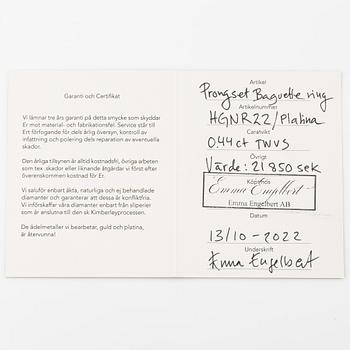 Garanti och Certifikat
Vi lämnar tre års garanti på detta smycke som skyddar
Er mot material- och fabrikationsfel. Service står till
Ert förfogande för dels årlig översyn, kontroll av
infattning och polering dels reparation av eventuella
skador.
Den årliga tillsynen är alltid kostnadsfri, övriga arbeten
som tex .skador eller liknande åtgärdar vi först efter
överenskommen kostnad för Er.
Vi saluför enbart äkta, naturliga och ej behandlade
diamanter och garanterar att dessa är konfliktfria.
Vi införskaffar våra diamanter enbart från sliperier
som är anslutna till den sk Kimberleyprocessen.
De ädelmetaller vi bearbetar, guld och platina,
är återvunna!
Artikel
Prongset Baguette ring
Artikelnummer
HGNR22/Platina
Caratvikt
0.44ct TWVS
Övrigt
Värde: 21 850 sek
Köpt hos
Emma Engelbert
Emma Engelbert AB
Datum
13/10-2022
Underskrift
Emma Engelbert